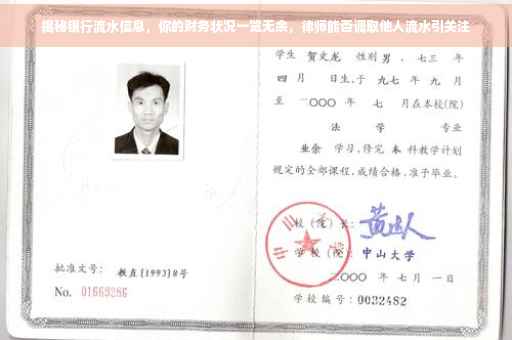 揭秘银行流水信息，你的财务状况一览无余，律师能否调取他人流水引关注
学生 贺文龙 性别 男 、七三 年
四 月 日生,于 九七 年 九 月
至 二〇〇〇 年 七 月在本校(院)
法 学 专业
业余 学习,修完 本 科教学计划
规定的全部课程,成绩合格,准予毕业。
校(院)长:
学校(院): 中山大学
二〇〇〇 年 七月 一日
批准文号: 教直[1993]8号
No. 01669286
学校编号: 0032482